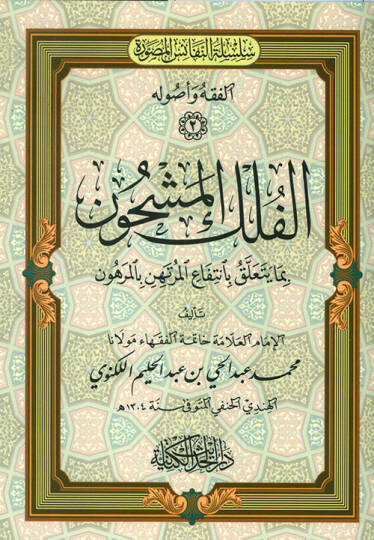 سلسلة النفائس المصورة
الفقه وأصوله
٢
الفُلك المشحون
بِمَا يَتعَلَّقُ بِانتِفَاعِ المُرتَهِنِ بِالمَرهُون
تأليفُ
الإمام العَلّامة خاتمة الفقهاء مَولانا
محمد عبد الحي بن عبد الحليم اللكنوي
الهندي الحنفي المتوفى سنة ١٣٠٤هـ